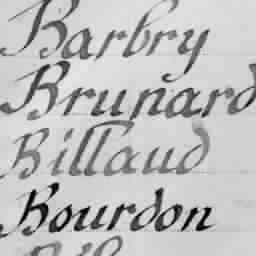 Barbry
Brunard
Billaud
Bourdon